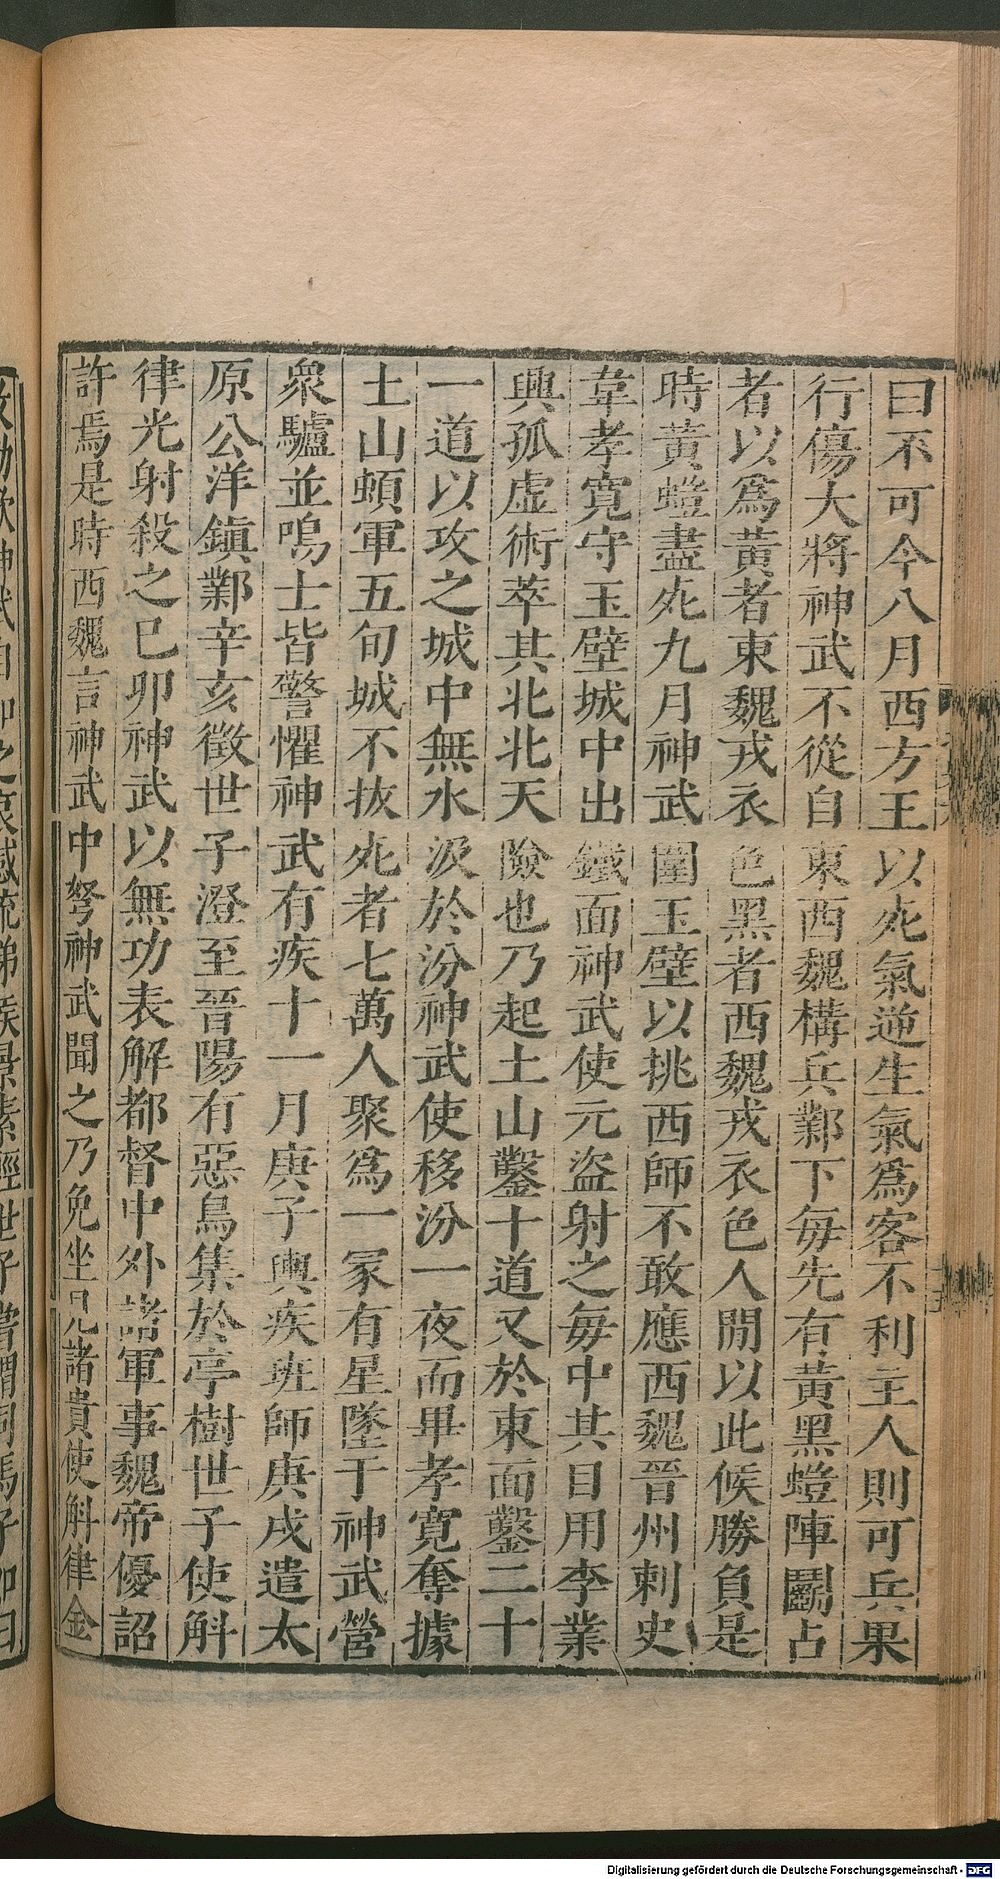 曰不可今八月西方王以死氣逆生氣爲客不利主人則可兵果
行傷大將神武不從自東西魏構兵鄴下每先有黃黑螘陣鬭占
者以爲黃者東魏戎衣色黑者西魏戎衣色人間以此候勝負是
時黃螘盡死九月神武圍玉壁以挑西師不敢應西魏晉州刺史
韋孝寬守玉壁城中出鐵面神武使元盜射之每中其目用李業
興孤虛術萃其北北天險也乃起土山鑿十道又於東面鑿二十
一道以攻之城中無水汲於汾神武使移汾一夜而畢孝寬奪據
土山頓軍五旬城不拔死者七萬人聚爲一冢有星墜于神武營
衆驢並鳴士皆警懼神武有疾十一月庚子輿疾班師庚戌遣太
原公洋鎮鄴辛亥徵世子澄至晉陽有惡鳥集於亭樹世子使斛
律光射殺之巳卯神武以無功表解都督中外諸軍事魏帝優詔
許焉是時西魏言神武中弩神武聞之乃免坐見諸貴使斛律金
Digitalisierung gefördert durch die Deutsche Forschungsgemeinschaft - DFG